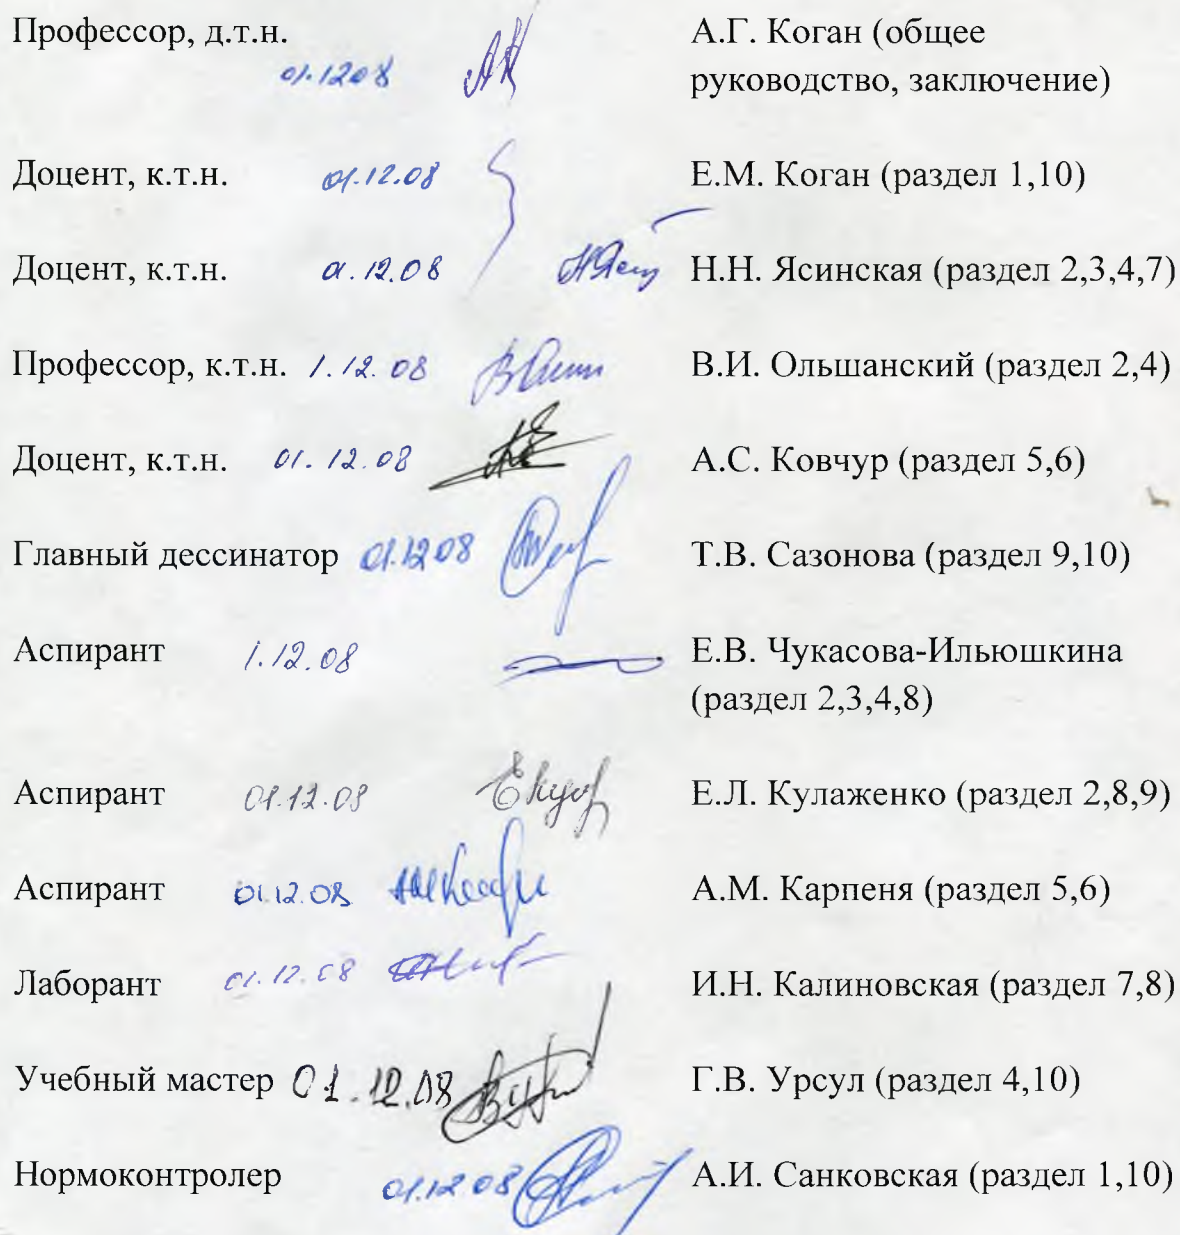 Профессор, д.т.н. А.Г. Коган (общее
01.12.08 руководство, заключение)
Доцент, к.т.н. 01.12.08 Е.М. Коган (раздел 1,10)
Доцент, к.т.н. 01.12.08 Н.Н. Ясинская (раздел 2,3,4,7)
Профессор, к.т.н. 1.12.08 В.И. Ольшанский (раздел 2,4)
Доцент, к.т.н. 01.12.08 А.С. Ковчур (раздел 5,6)
Главный дессинатор 01.12.08 Т.В. Сазонова (раздел 9,10)
Аспирант 1.12.08 Е.В. Чукасова-Ильюшкина
(раздел 2,3,4,8)
Аспирант 01.12.08 Е.Л. Кулаженко (раздел 2,8,9)
Аспирант 01.12.08 А.М. Карпеня (раздел 5,6)
Лаборант 01.12.08 И.Н. Калиновская (раздел 7,8)
Учебный мастер 01.12.08 Г.В. Урсул (раздел 4,10)
Нормоконтролер 01.12.08 А.И. Санковская (раздел 1,10)